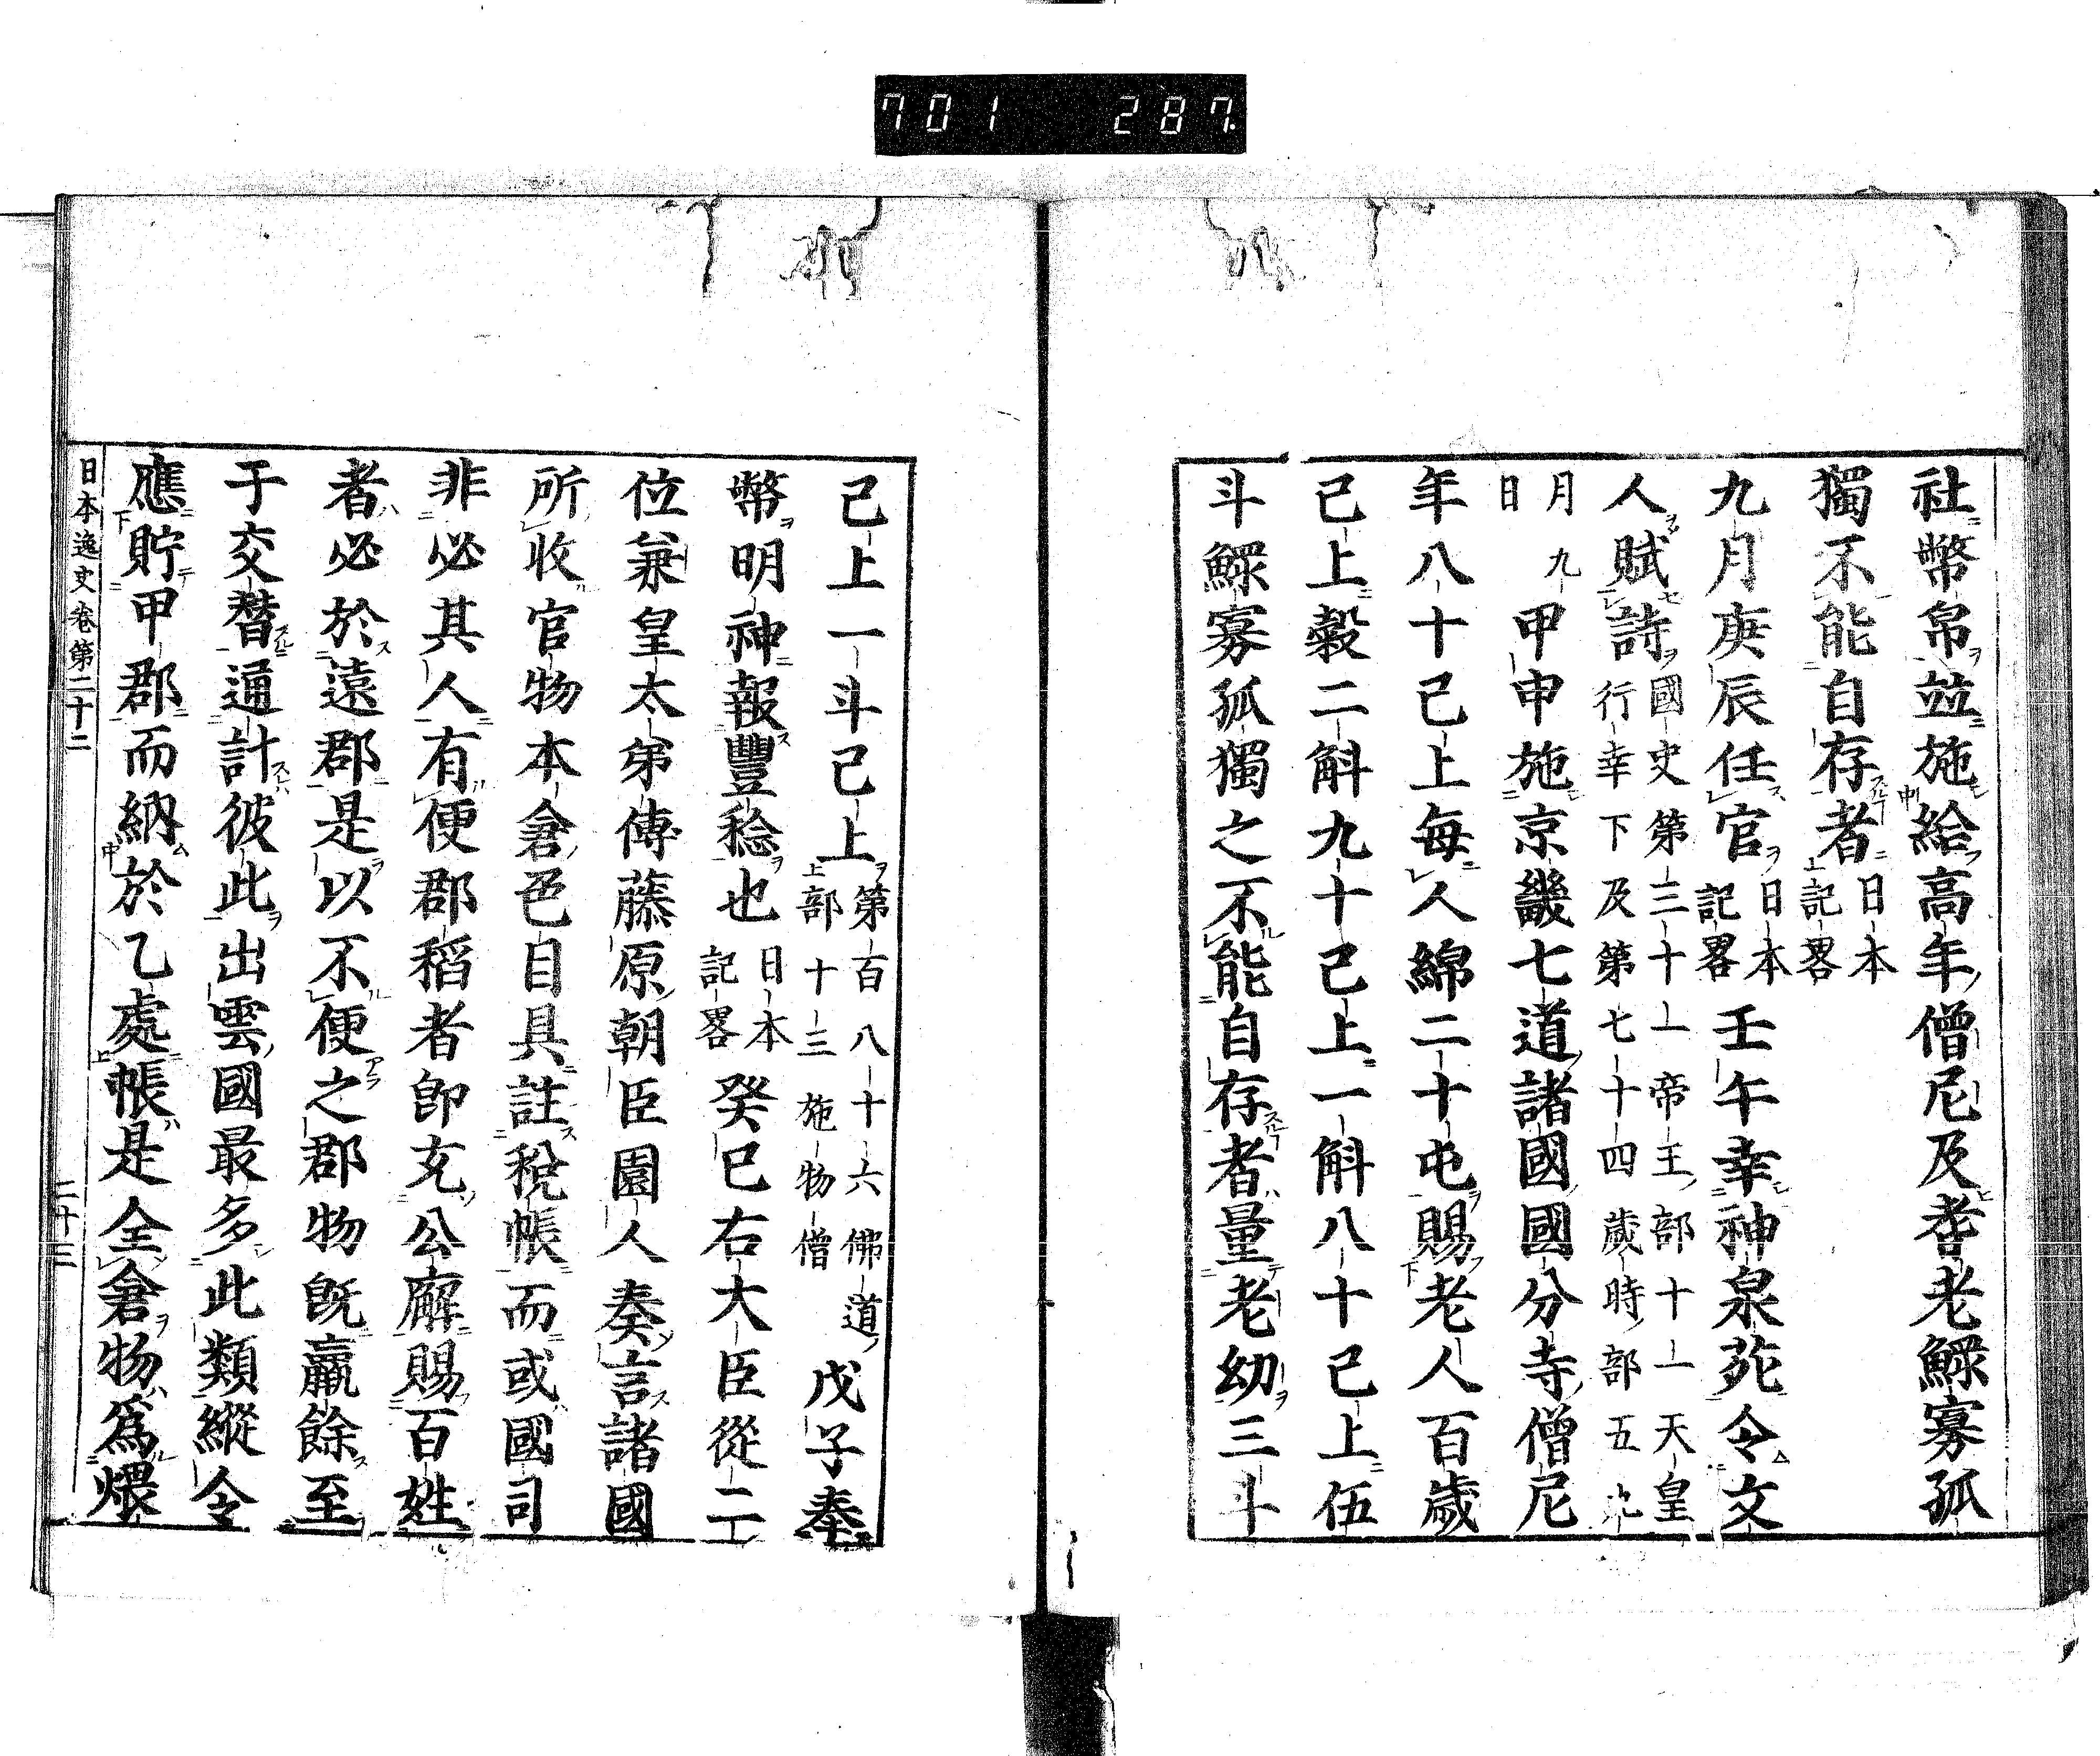 701 287
社幣帛並施給高年僧尼及耆老鰥寡孤
獨不能自存者日本記畧
九月庚辰任官日本記畧壬午幸神泉苑令文
人賦詩國史第三十一帝王部十一天皇行幸下及第七十四歲時部五九
月九日甲申施京畿七道諸國國分寺僧尼
年八十已上每人綿二十屯賜老人百歲
已上穀二斛九十已上一斛八十已上伍
斗鰥寡孤獨之不能自存者量老幼三斗
已上一斗已上第百八十六佛道部十三施物僧上戊子奉
幣明神報豐稔也日本記畧癸巳右大臣從二
位兼皇太弟傅藤原朝臣園人奏言諸國
所收官物本倉色目具註稅帳而或國司
非必其人有便郡稻者卽充公廨賜百姓
者必於遠郡是以不便之郡物旣羸餘至
于交替通計彼此出雲國最多此類縱令
應貯甲郡而納於乙處帳是全倉物爲煨
日本逸史卷第二十二 二十三